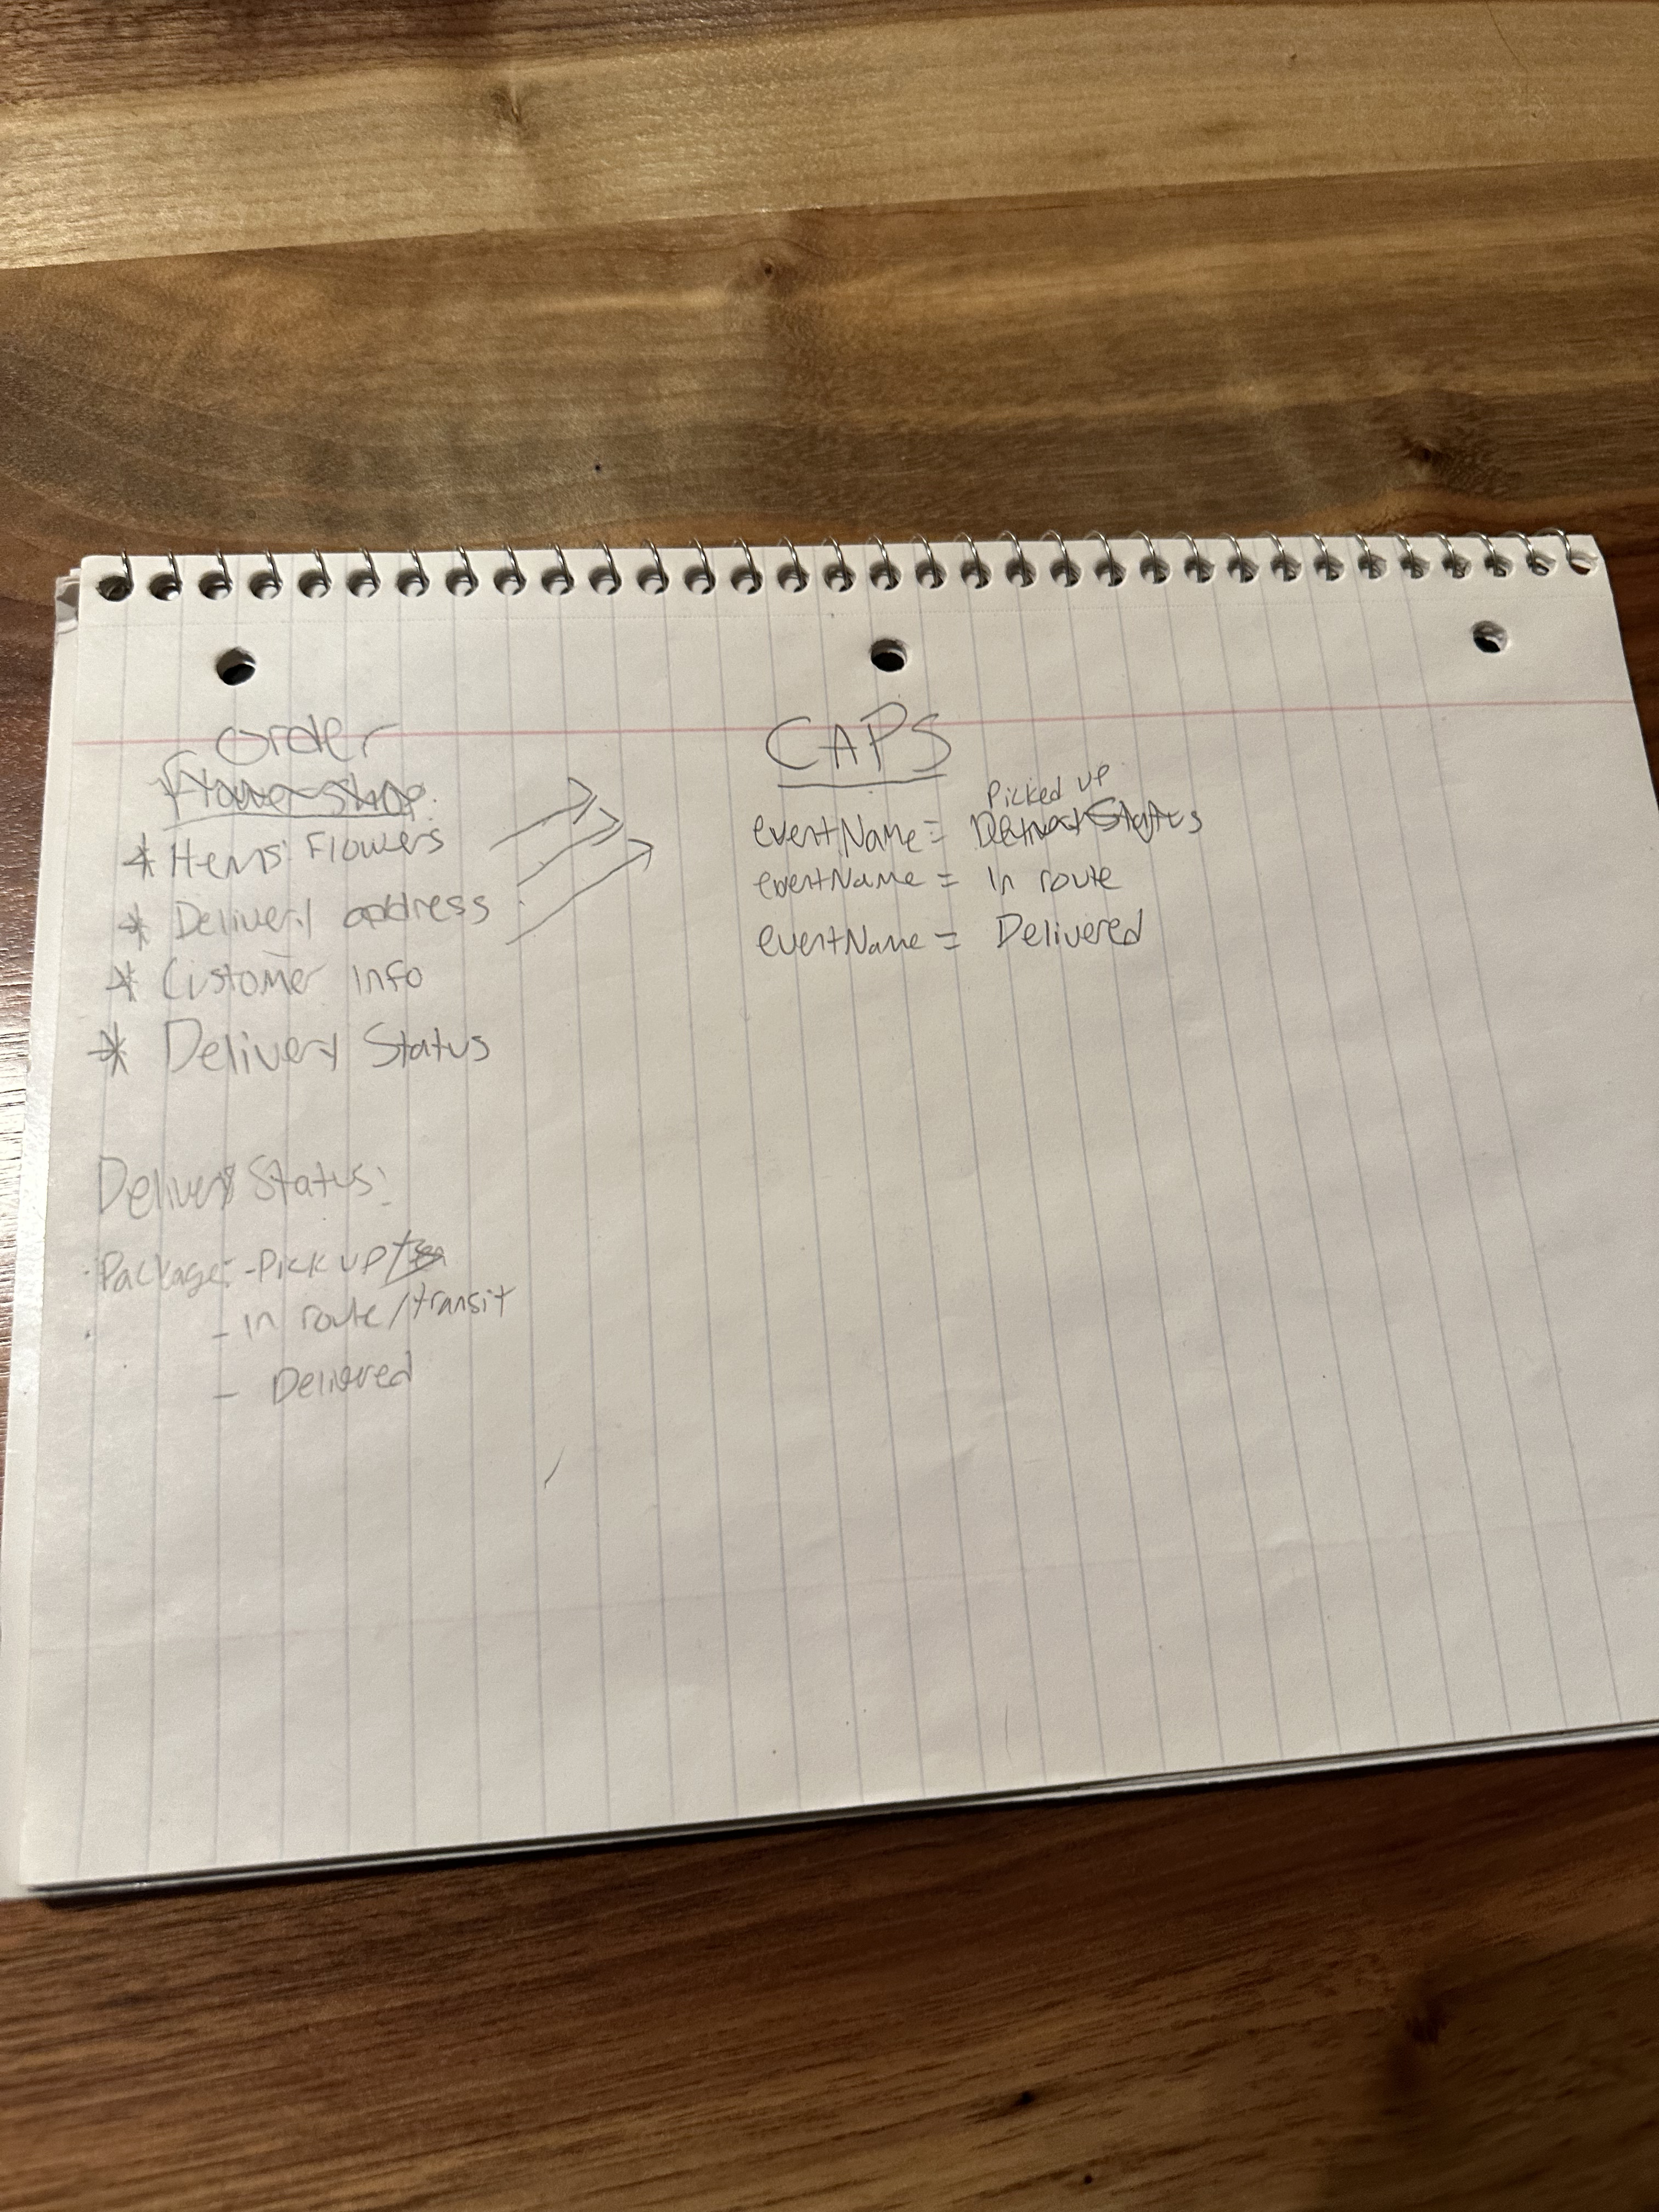 Order
Flower Shop:
* Items: Flowers
* Delivery address
* Customer info
* Delivery Status
Delivery Status:
Package: - Pick up/
- in route/transit
- Delivered
CAPS
Picked up
eventName = Delivery Status
eventName = In route
eventName = Delivered